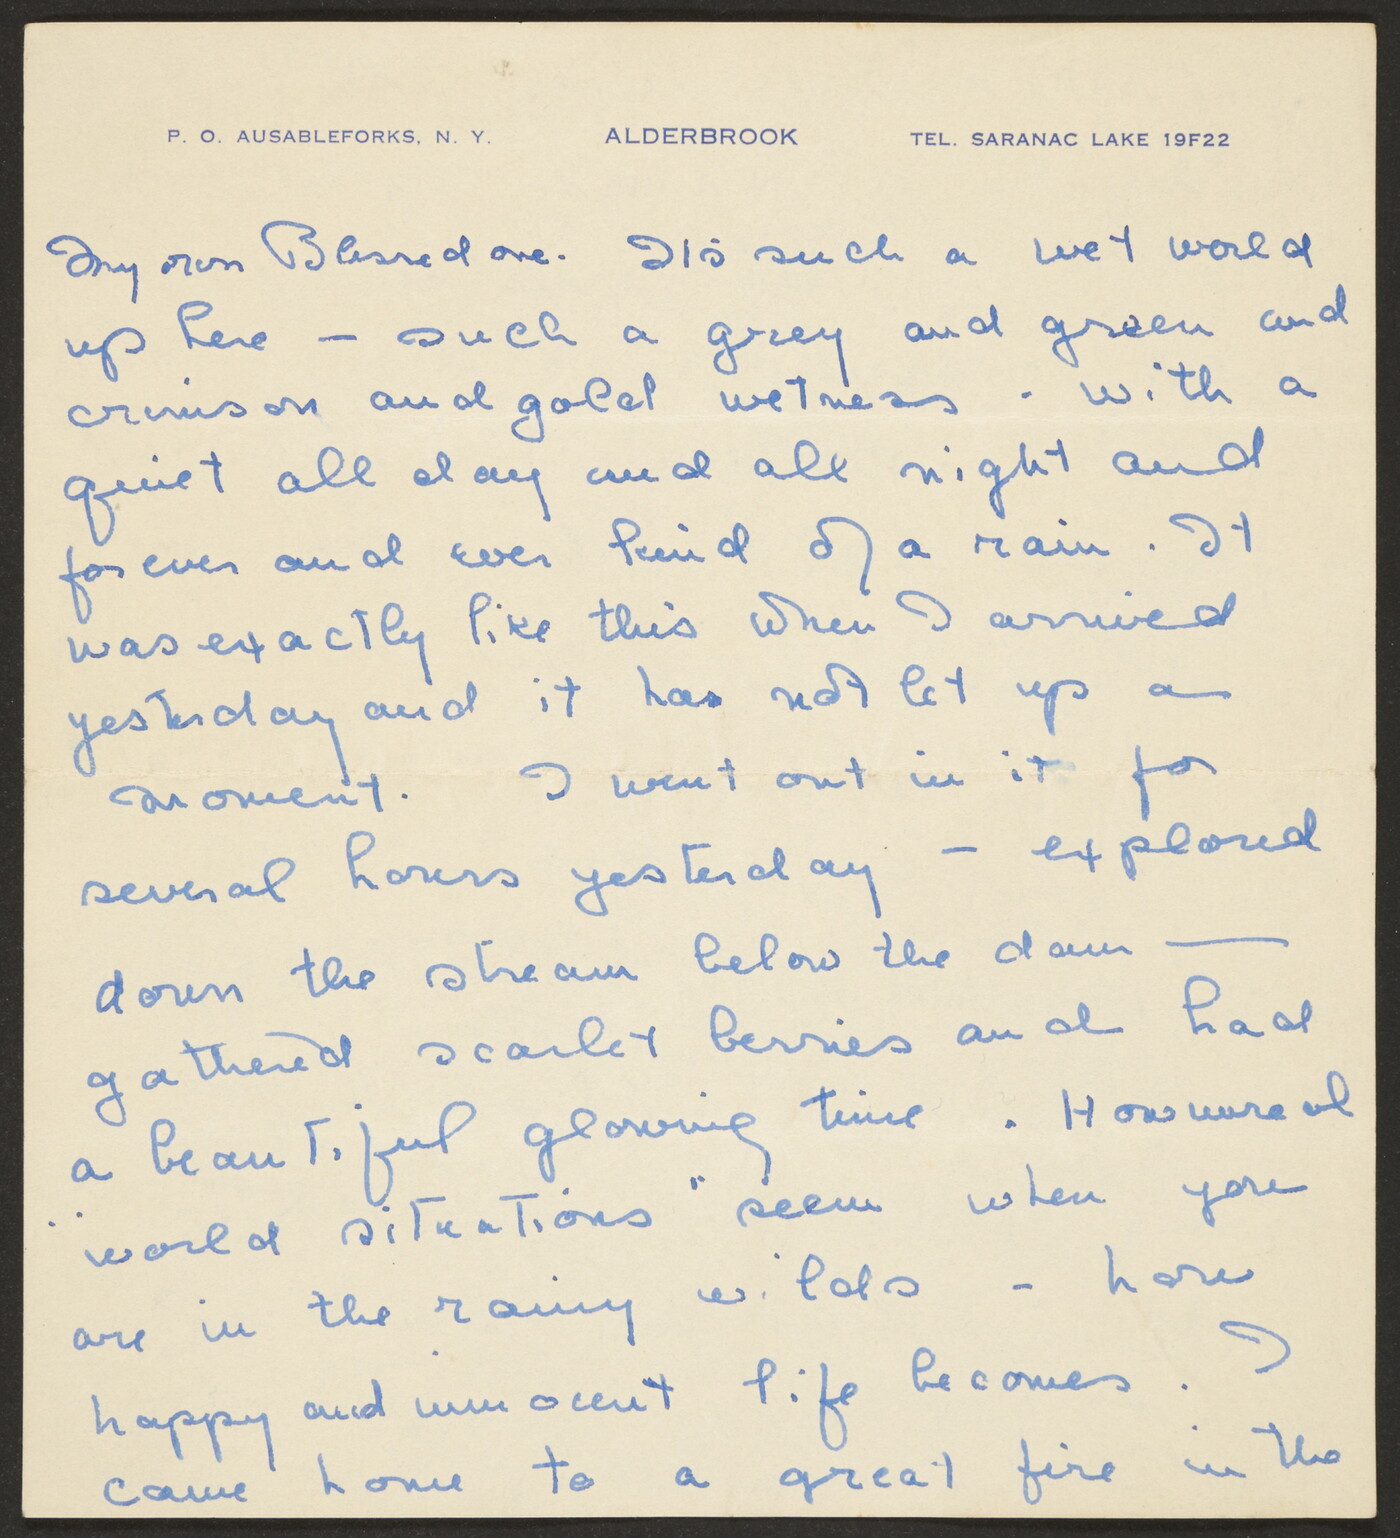 P. O. AUSABLEFORKS, N. Y. ALDERBROOK TEL. SARANAC LAKE 19F22
My own Blessed one. It's such a wet world
up here — such a grey and green and
crimson and gold wetness - with a
quiet all day and all night and
forever and ever kind of a rain. It
was exactly like this when I arrived
yesterday and it has not let up a
moment. I went out in it for
several hours yesterday — explored
down the stream below the dam —
gathered scarlet berries and had
a beautiful glowing time. How unreal
"world situations" seem when you
are in the rainy wilds - how
happy and innocent life becomes. I
came home to a great fire in the